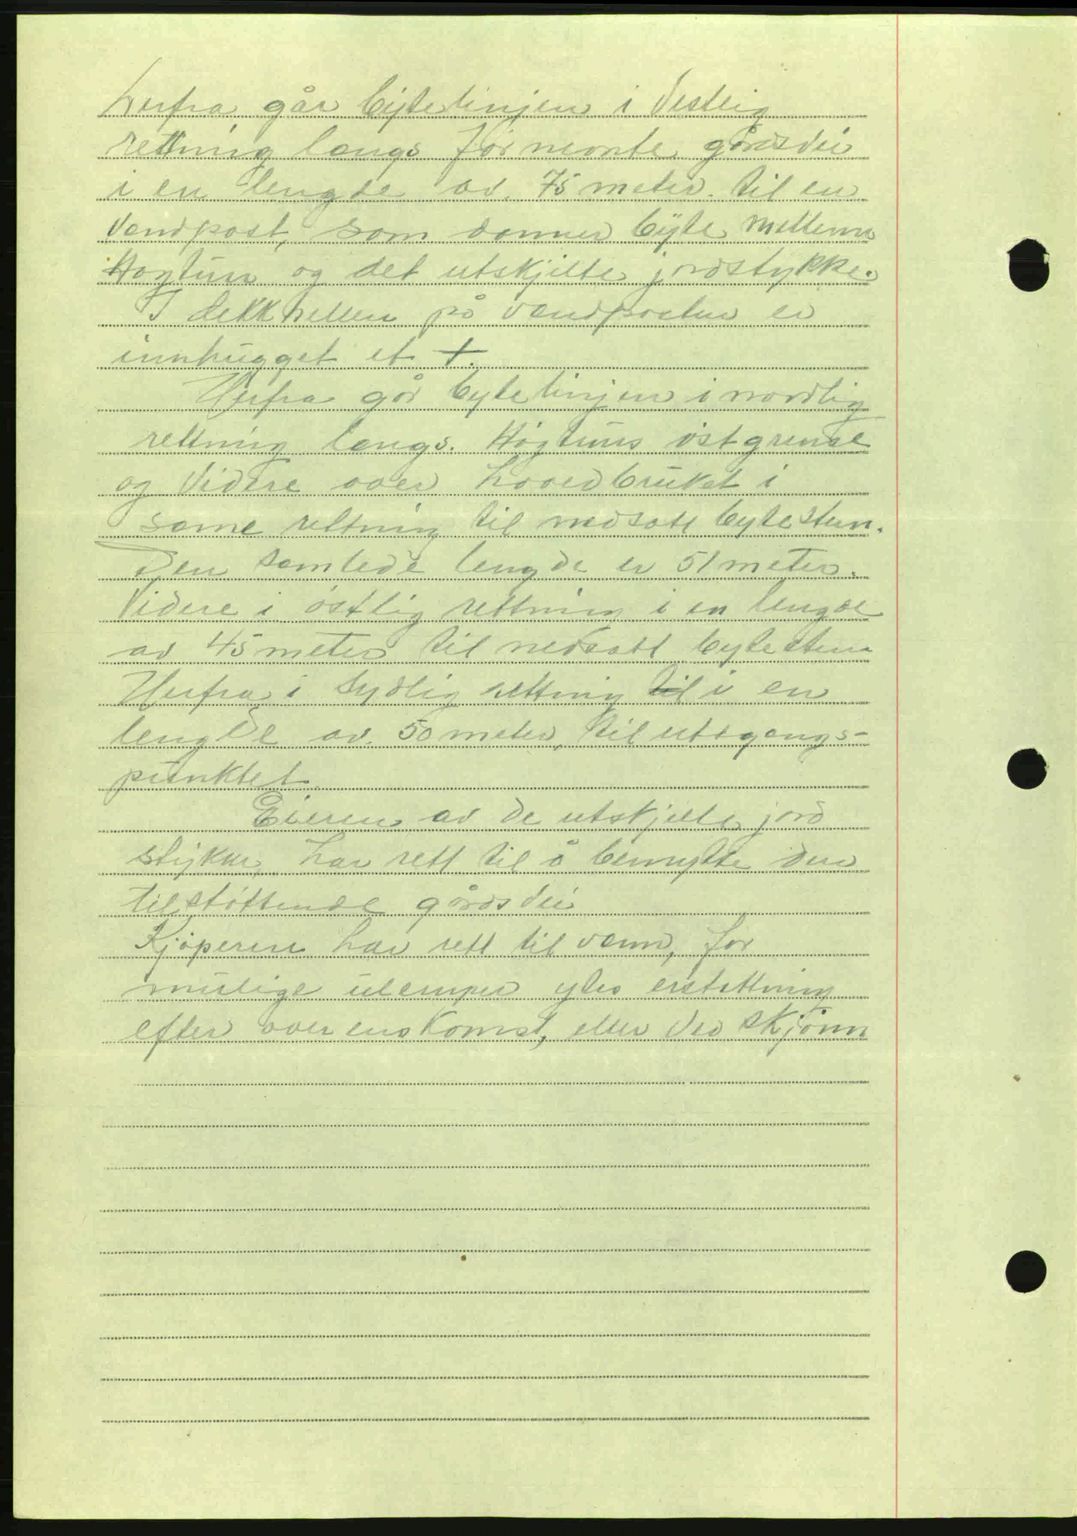 herfra går bytelinjen i Vestlig
rettning langs før nevnte gårdsvei
i en lengde av 75 meter. til en
Vandpost, som danner byte mellem
Høgtun og det utskjilte jordstykke.
I dekkhellen på vandposten er
innhugget et +.
Herfra går bytelinjen i nordlig
rettning langs. Høgtuns østgrense
og Videre over hovedbruket i
same rettning til nedsatt bytesten.
Den samlede lengde er 51 meter.
Videre i østlig rettning i en lengde
av 45 meter til nedsatt bytesten
Herfra i sydlig rettning til i en
lengde av. 50 meter, til utsgangs-
punktet.
Eieren av de utskjilte jord
stykker, har rett til å benytte den
tilstøttende gårdsvei
Kjøperen har rett til vann, for
mulige ulemper ytes erstattning
efter overenskomst, eller ved skjønn